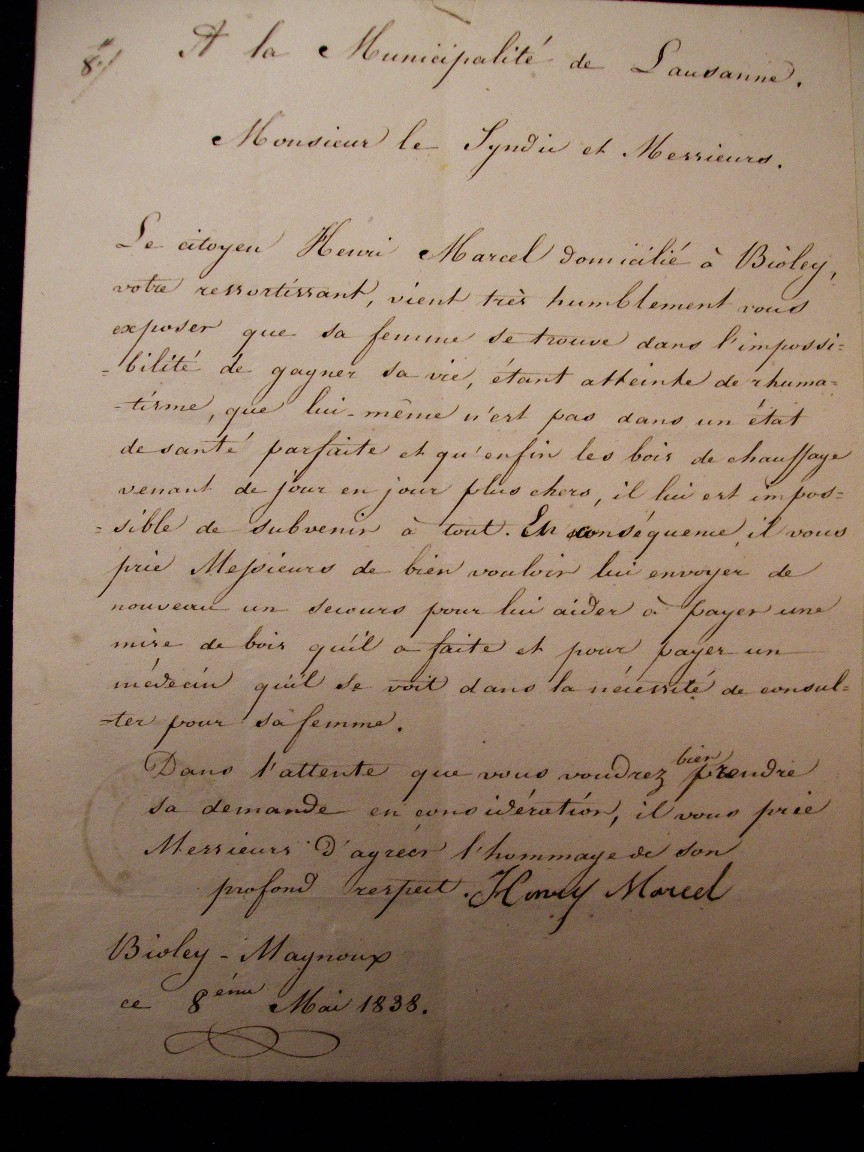 8./
A la Municipalité de Lausanne.
Monsieur le Syndic et Messieurs.
Le citoyen Henri Marcel domicilié à Bioley,
votre ressortissant, vient très humblement vous
exposer que sa femme se trouve dans l'impossi=
=bilité de gagner sa vie, étant atteinte de rhuma=
=tisme, que lui-même n'est pas dans un état
de santé parfaite et qu'enfin les bois de chauffage
venant de jour en jour plus chers, il lui est impos=
=sible de subvenir à tout. En conséquence, il vous
prie Messieurs de bien vouloir lui envoyer de
nouveau un secours pour lui aider à payer une
mise de bois qu'il a faite et pour payer un
médecin qu'il se voit dans la nécessité de consul=
=ter pour sa femme.
Dans l'attente que vous voudrez bien prendre
sa demande en considération, il vous prie
Messieurs d'agréer l'hommage de son
profond respect. Henry Marcel
Bioley-Magnoux
ce 8ème Mai 1838.